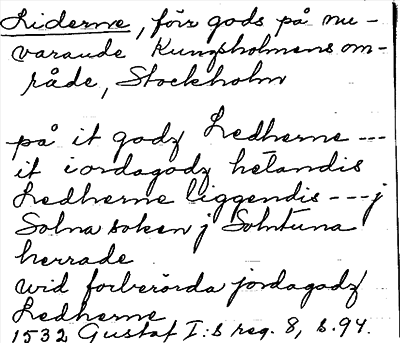 Liderne, förr gods på nu-
varande Kungsholmens om-
råde, Stockholm
på it godz Ledherne ---
it iordagodz hetandis
Ledherne liggendis --- j
Solna soken j Solntuna
herrade
wid forberörda jordagodz
Ledherne
1532 Gustaf I:s reg. 8, s. 94.